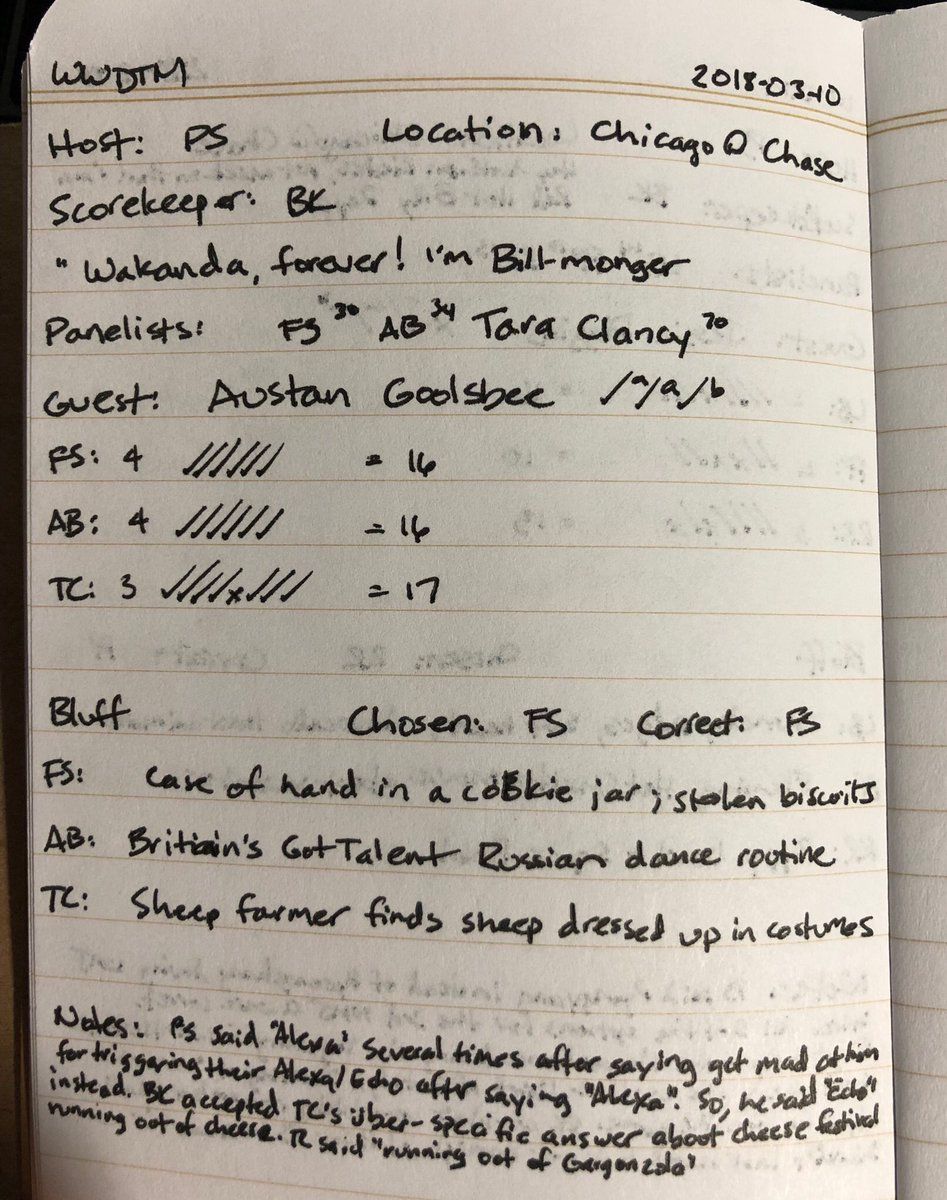 WWDTM 2018-03-10
Host: PS Location: Chicago @ Chase
Scorekeeper: BK
"Wakanda, forever! I'm Bill-monger
Panelists: FS "30 AB 34 Tara Clancy 70
Guest: Austan Goolsbee /a/a/b
FS: 4 ////// = 16
AB: 4 ////// = 16
TC: 3 ////x/// = 17
Bluff Chosen: FS Correct: FS
FS: case of hand in a cookie jar; stolen biscuits
AB: Britiain's Got Talent Russian dance routine
TC: Sheep farmer finds sheep dressed up in costumes
Notes: PS said "Alexa" several times after saying get mad at him
for triggaring their Alexa/Echo after saying "Alexa". So, he said "Echo"
instead. BK accepted TC's über-specific answer about cheese festival
running out of cheese. TC said "running out of Gorgonzola"